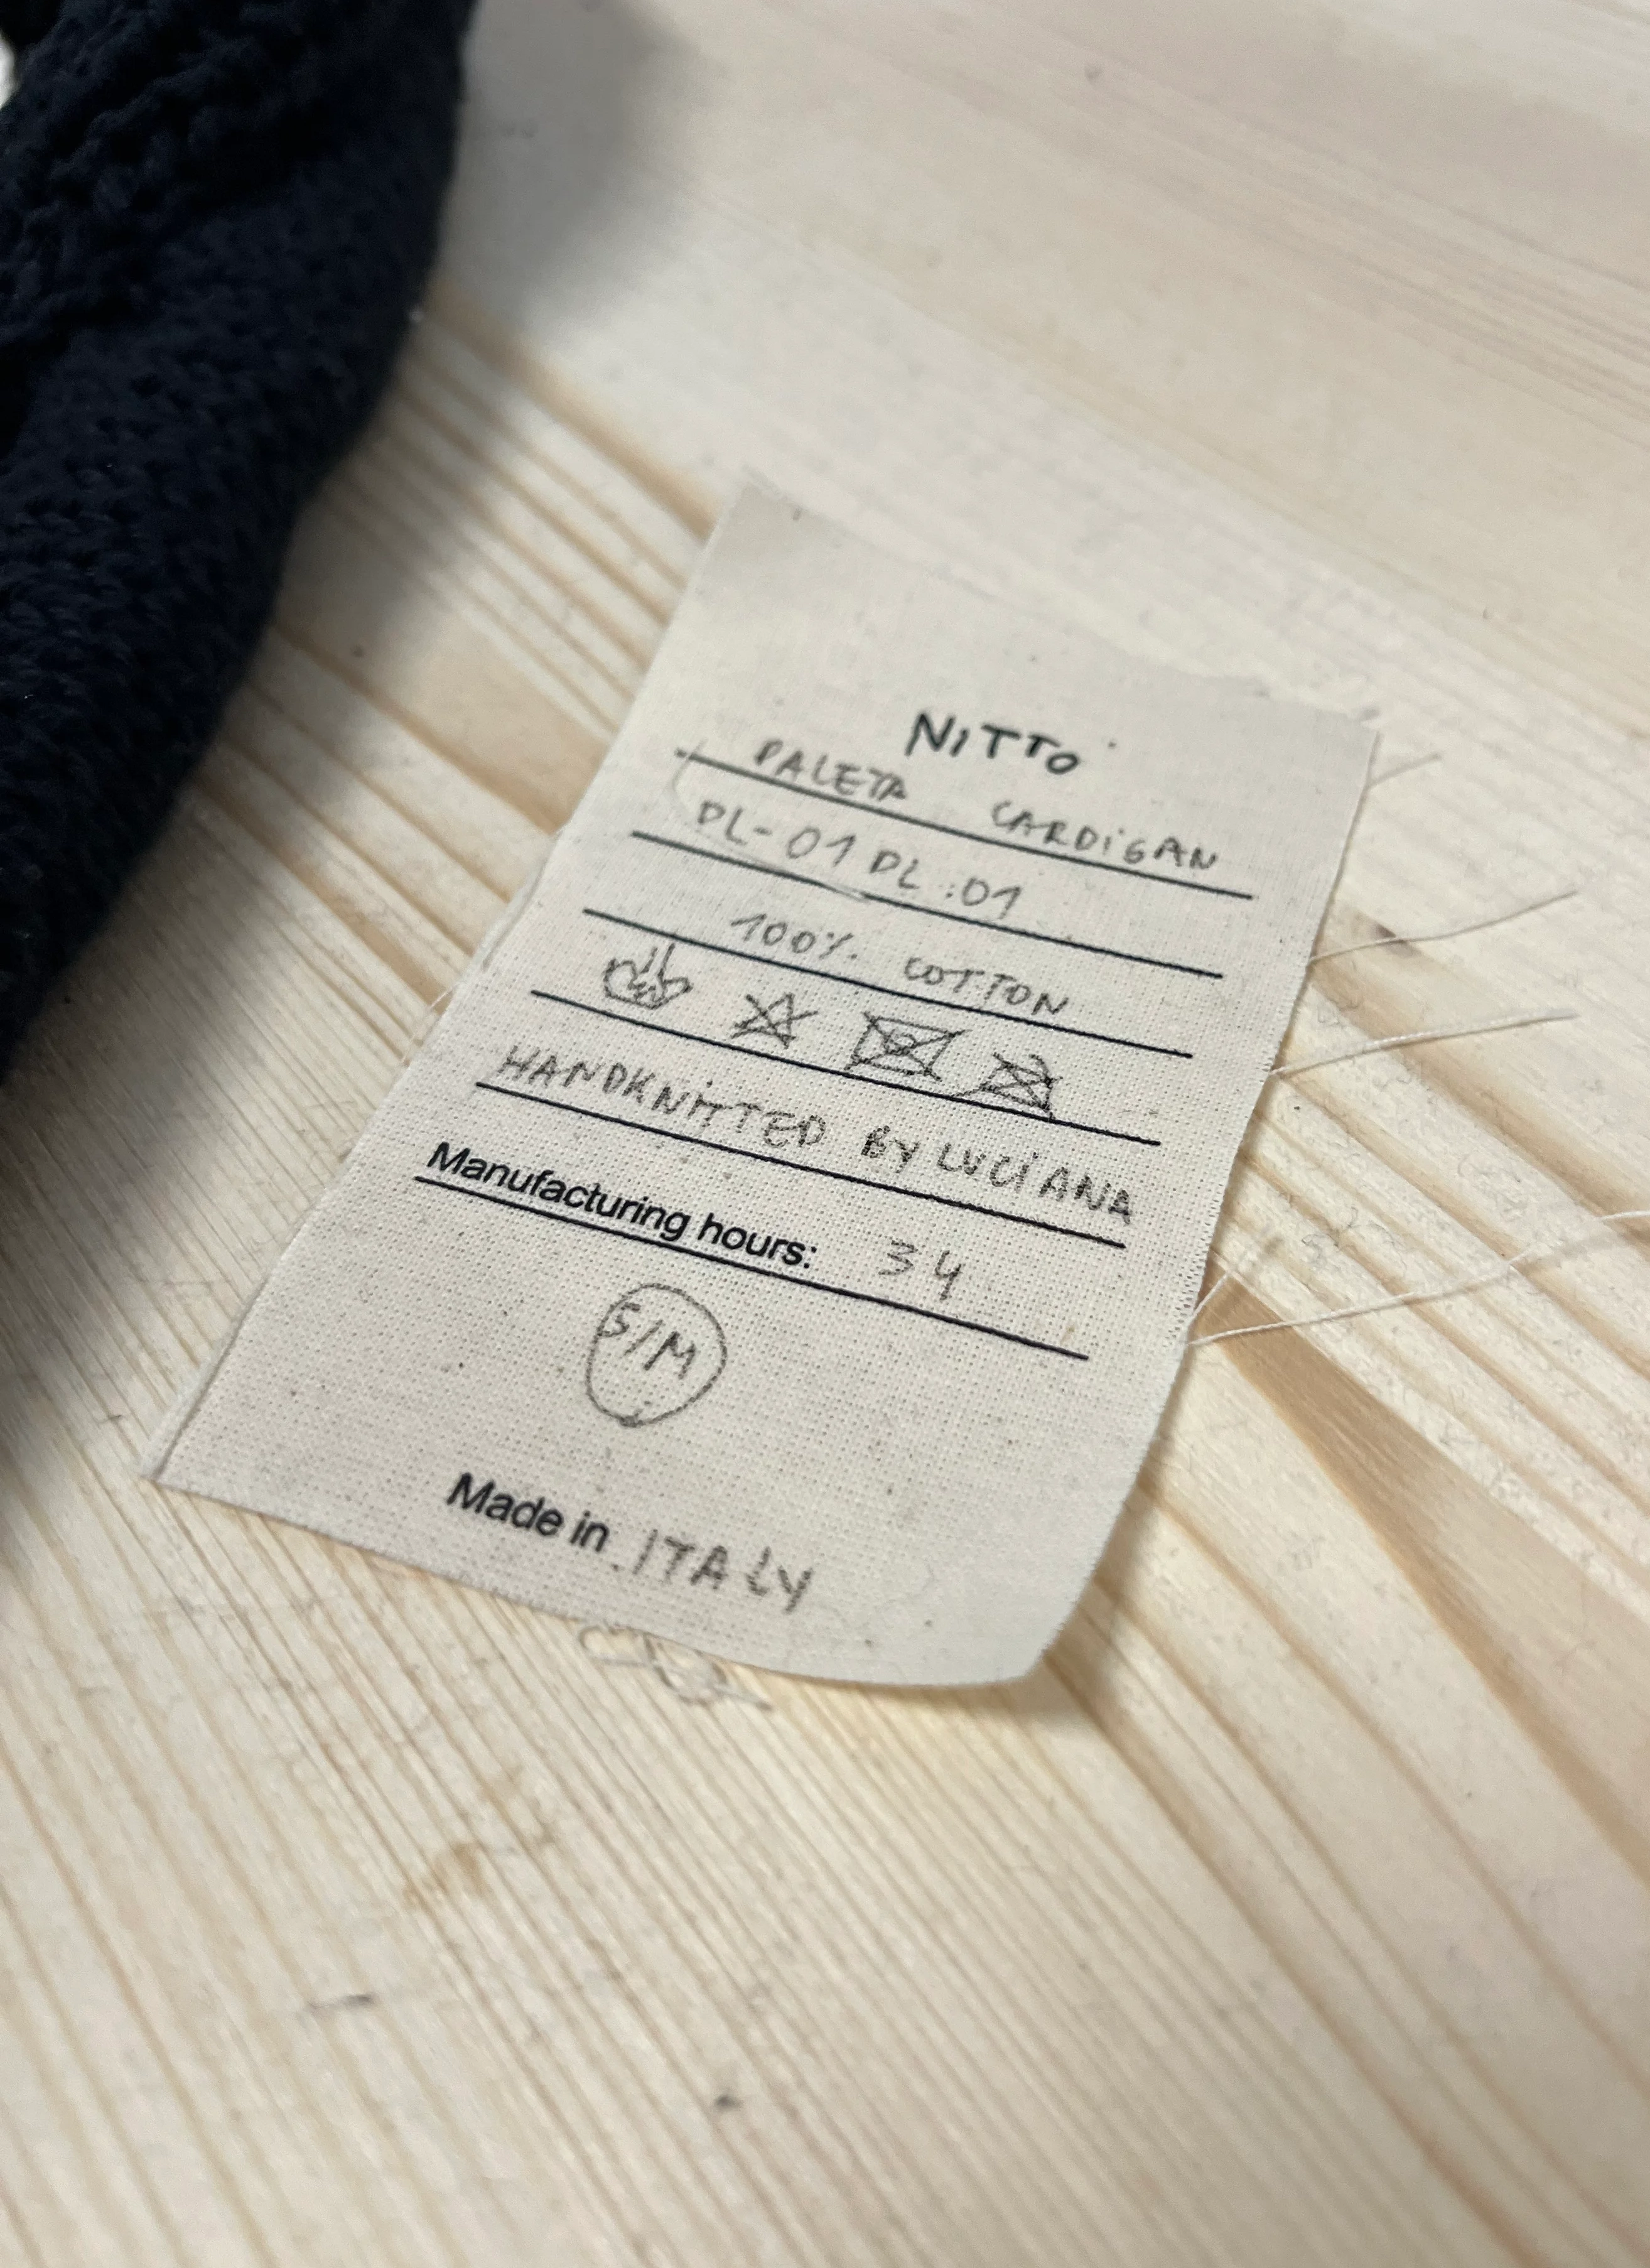 NiTTO
PALETA CARDiGAN
DL-01 DL.01
100% COTTON
HANDKNiTTED BY LUCiANA
Manufacturing hours: 34
S/M
Made in ITALY